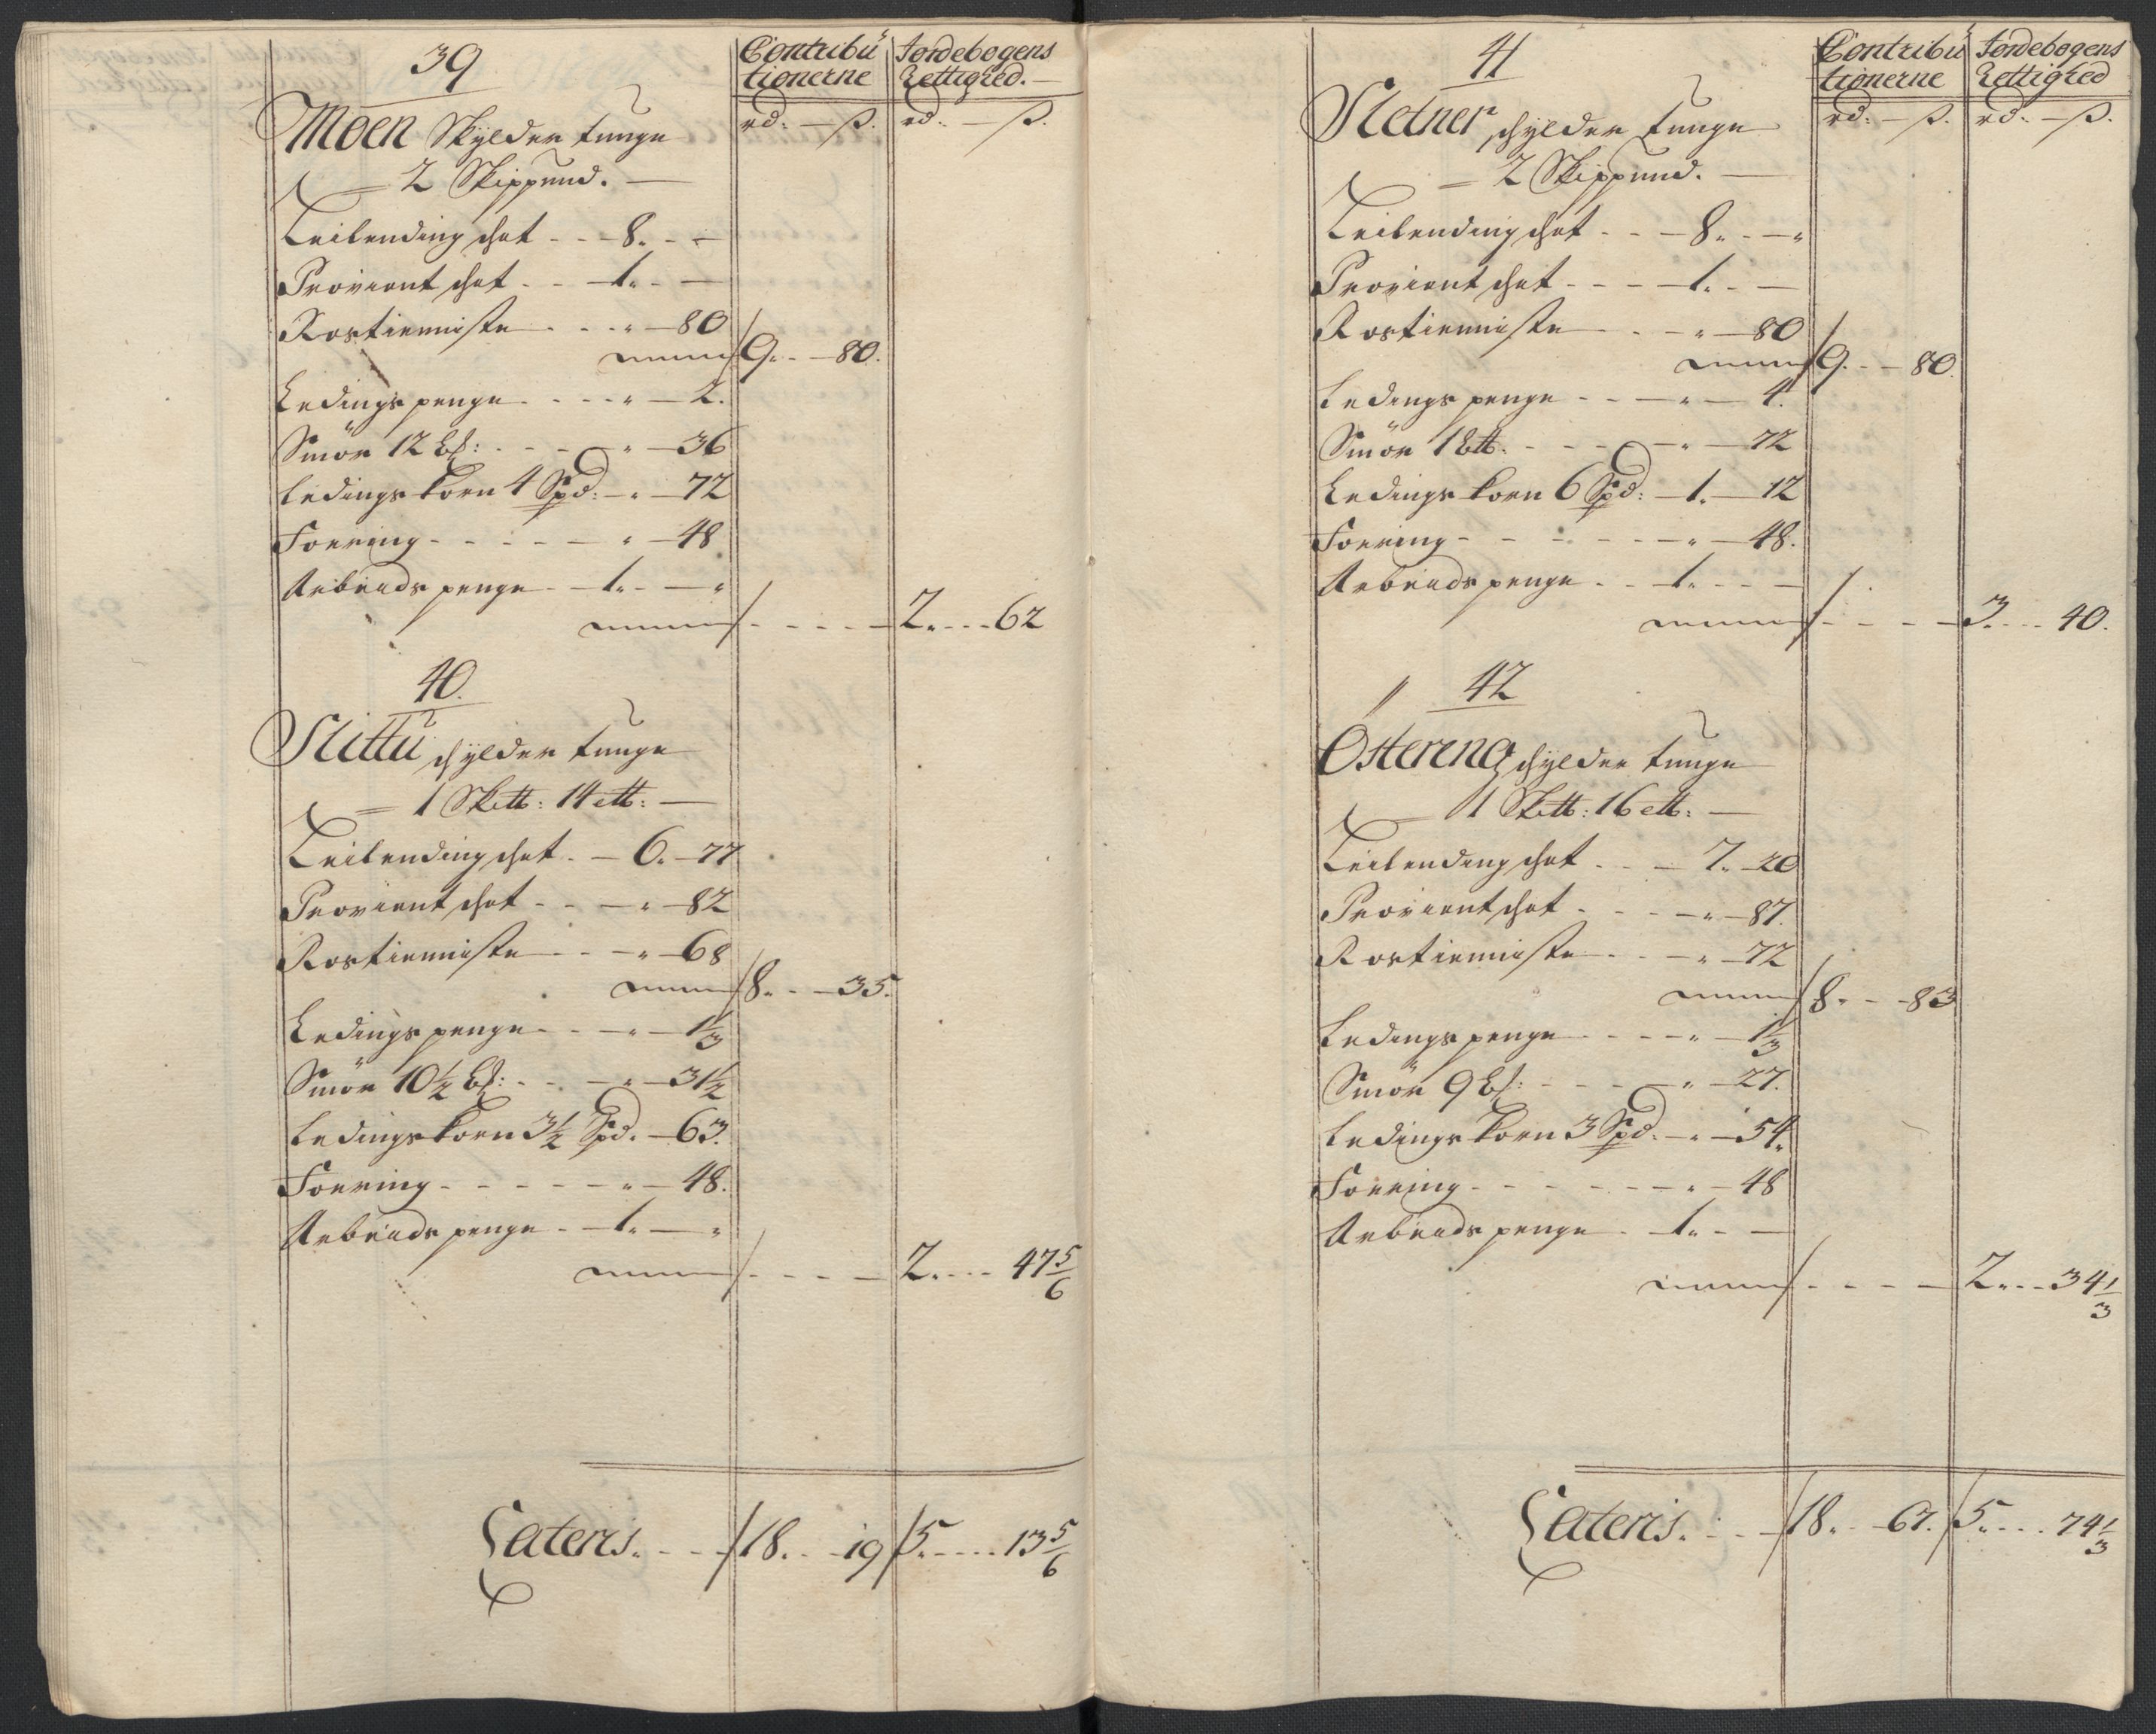 39
Contribu Jordebogens
tionerne Rettighed.
rd: — ß. rd. — ß.
Moen Skylder tunge
2 Skippund.
Leilending schat - - - 8. - -
Proviant schat - - 1. - —
Rostienniste - - - „ — 80
9. - - 80.
Ledings penge - - - - „ — 2.
Smör 12 bs: - - - „ — 36
Ledings korn 4 Spd: - „ — 72
Foering - - - - - „ — 48
Arbeids penge - - 1. - — „
- - - - - 2. - - - 62
40.
Slittu schylder tunge
1 Sk℔: 14 ℔:
Leilending schat - - 6. - 77
Proviant schat - - - „ - 82
Rostienniste - - - „ - 68
8. - - 35.
Ledings penge - - - „ - 1⅓
Smör 10½ bs: - - - „ - 31½
Ledings korn 3½ Spd. - 63.
Foering - - - - - „ - 48.
Arbeids penge - - 1. — „
- - - - 2. - - - 47 5/6
Lateris. - - - 18. - - 19 5. - - - 13 5/6
41
Contribu Jordebogens
tionerne Rettighed
rd: — ß. rd: — ß.
Sletner schylder tunge
2 Skippund.
Leilending schat - - - 8. - — „
Proviant schat - - - 1. - —
Rostienniste - - - „ — 80
9. - - 80.
Ledings penge - - - „ — 4.
Smör 1 b℔. - - - - „ — 72
Ledings korn 6 Spd: - 1. — 12
Foering - - - - - „ — 48.
Arbeids penge - - 1. - - —
- - - - 3. - - - 40.
42
Östereng schylder tunge
1 Sk℔: 16 ℔:
Leilending schat - - - 7. - 20
Proviant schat - - - - „ - 87.
Rostienniste - - - „ - 72
8. - - 83
Ledings penge - - - - „ - 1⅓
Smör 9 bs: - - - - „ - 27.
Ledings korn 3 Spd. - „ - 54.
Foering - - - - - - „ - 48
Arbeids penge - 1. - —
- - - - 2. - - 34⅓
Lateris. - - - 18. - - 67. 5. - - - 74⅓